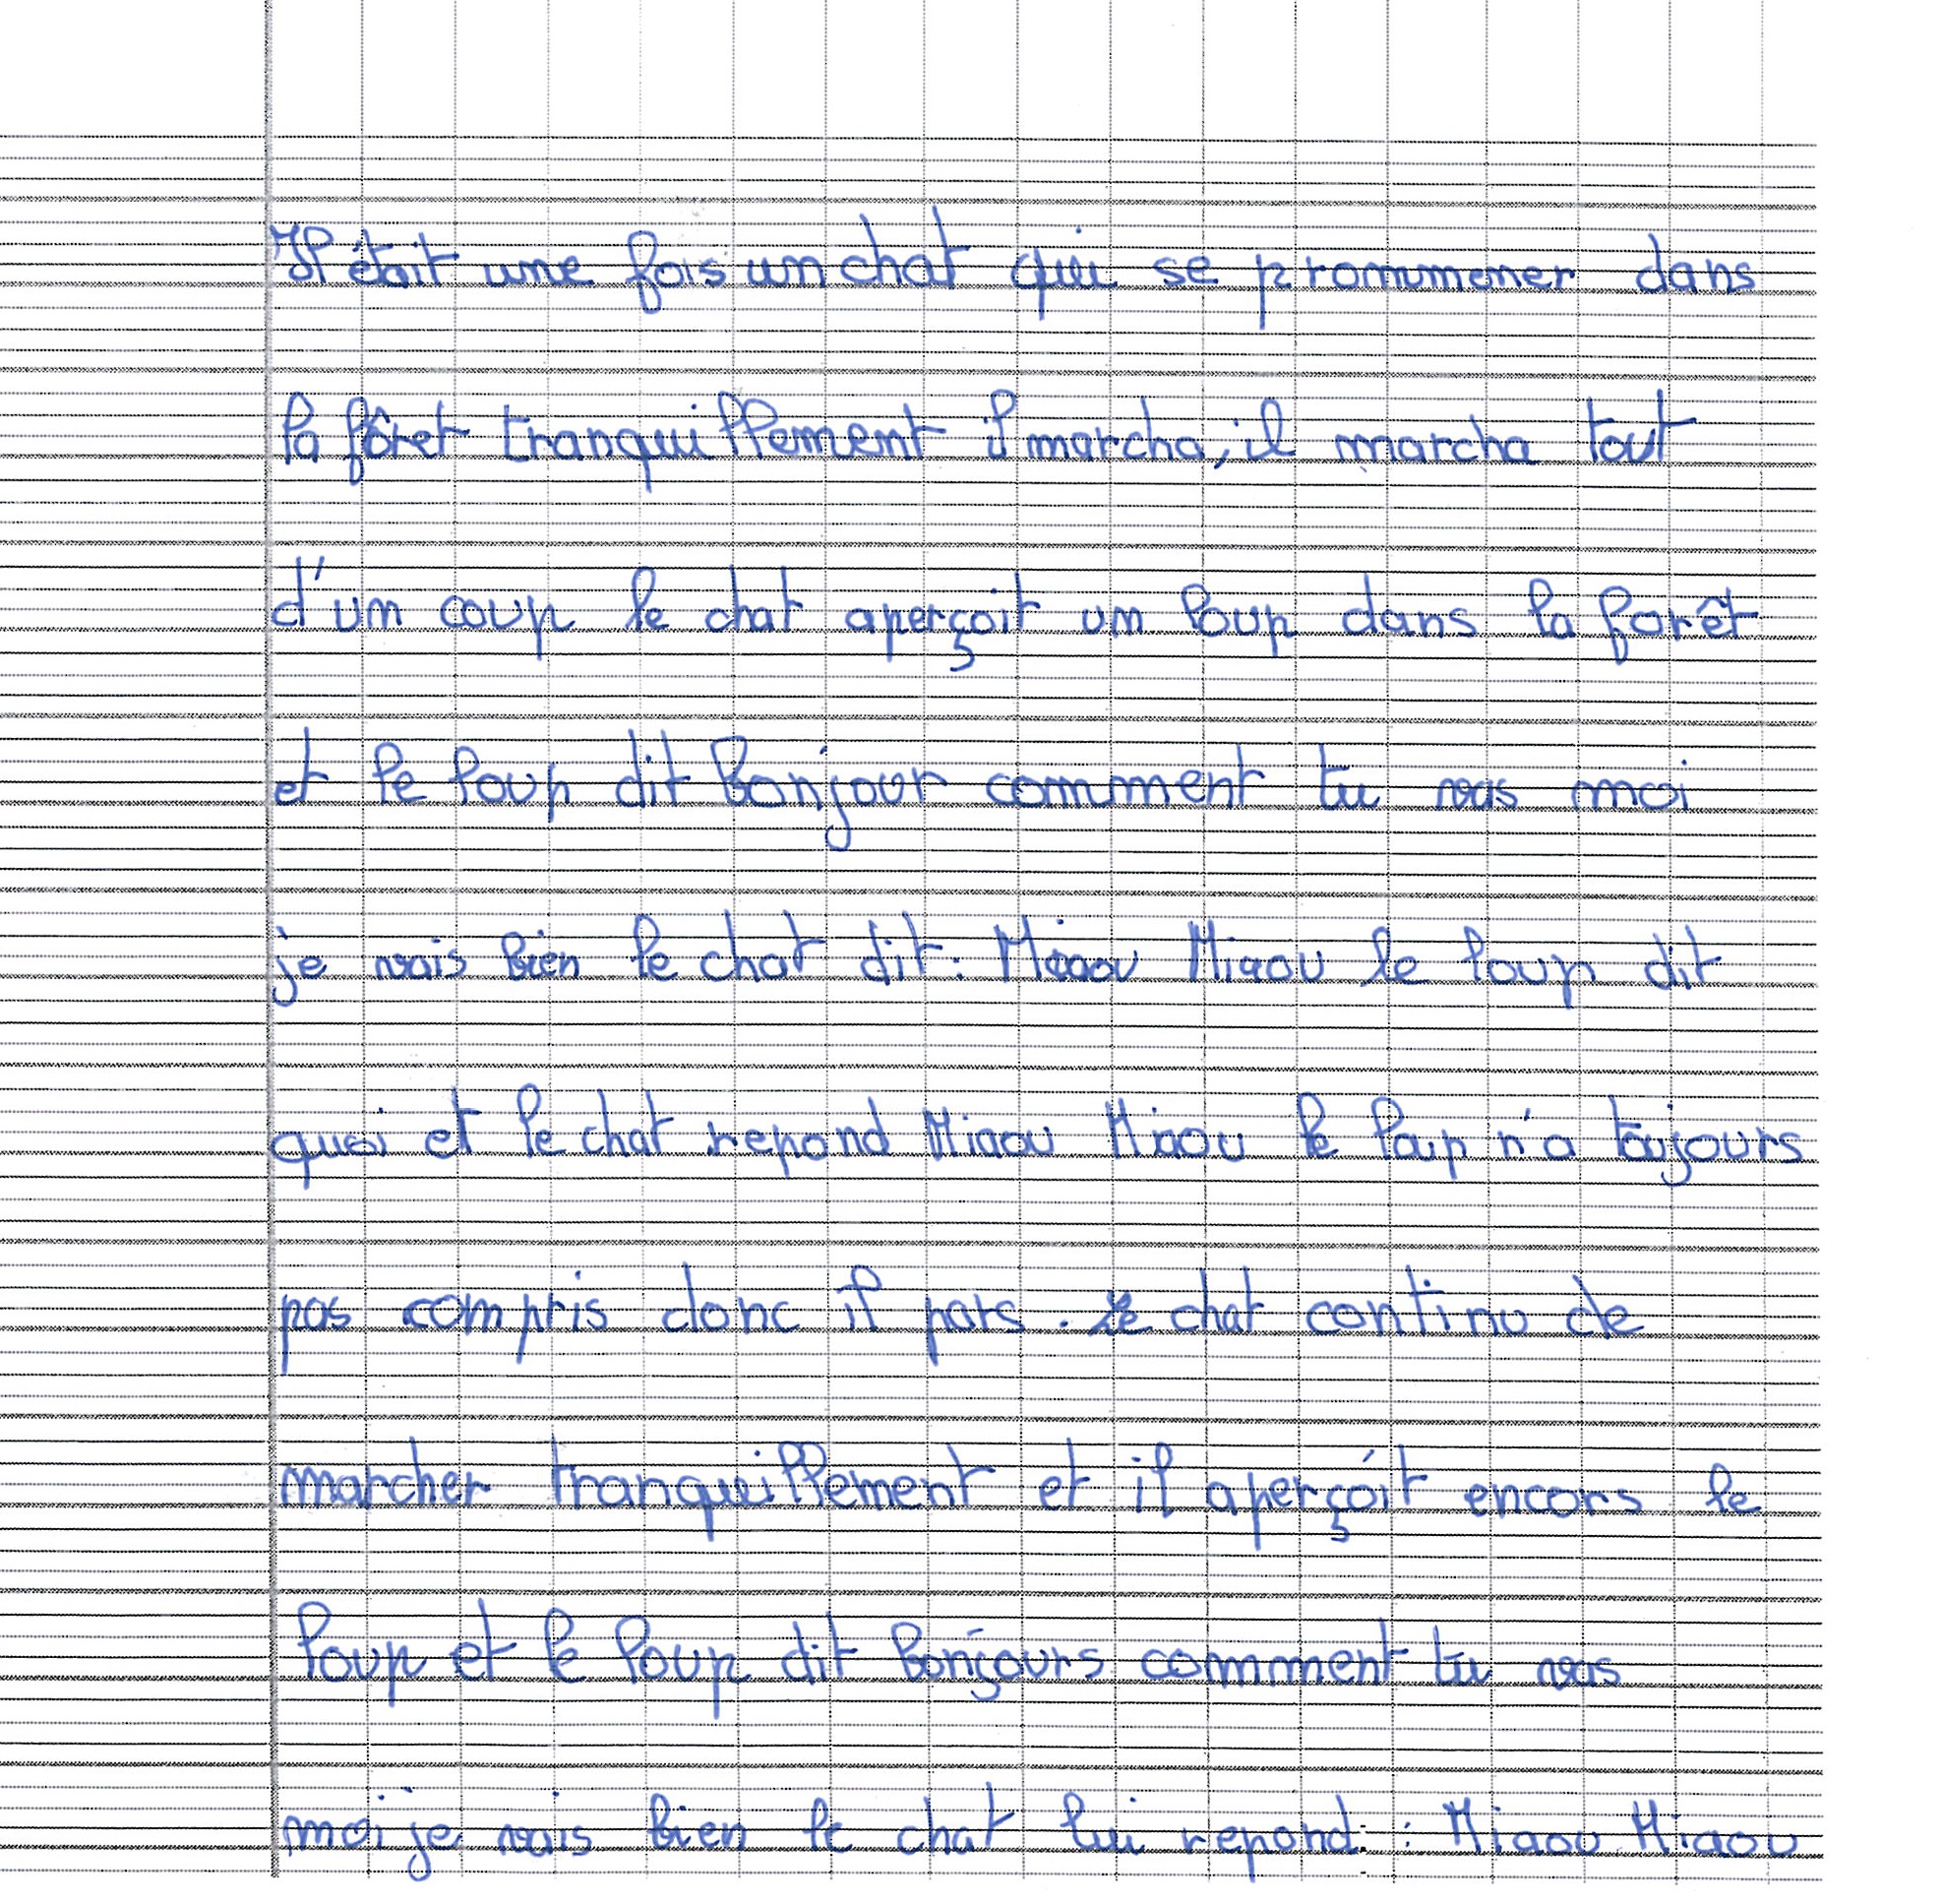 Il était une fois un chat qui se prommener dans
la fôret tranquillement il marcha, il marcha tout
d'un coup le chat aperçoit un loup dans la forêt
et le loup dit Bonjour comment tu vas moi
je vais bien le chat dit : Miaou Miaou le loup dit
quoi et le chat repond Miaou Miaou le loup n'a toujours
pas compris donc il pars. Le chat continu de
marcher tranquillement et il aperçoit encors le
loup et le loup dit Bonjours comment tu vas
moi je vais bien le chat lui repond : Miaou Miaou